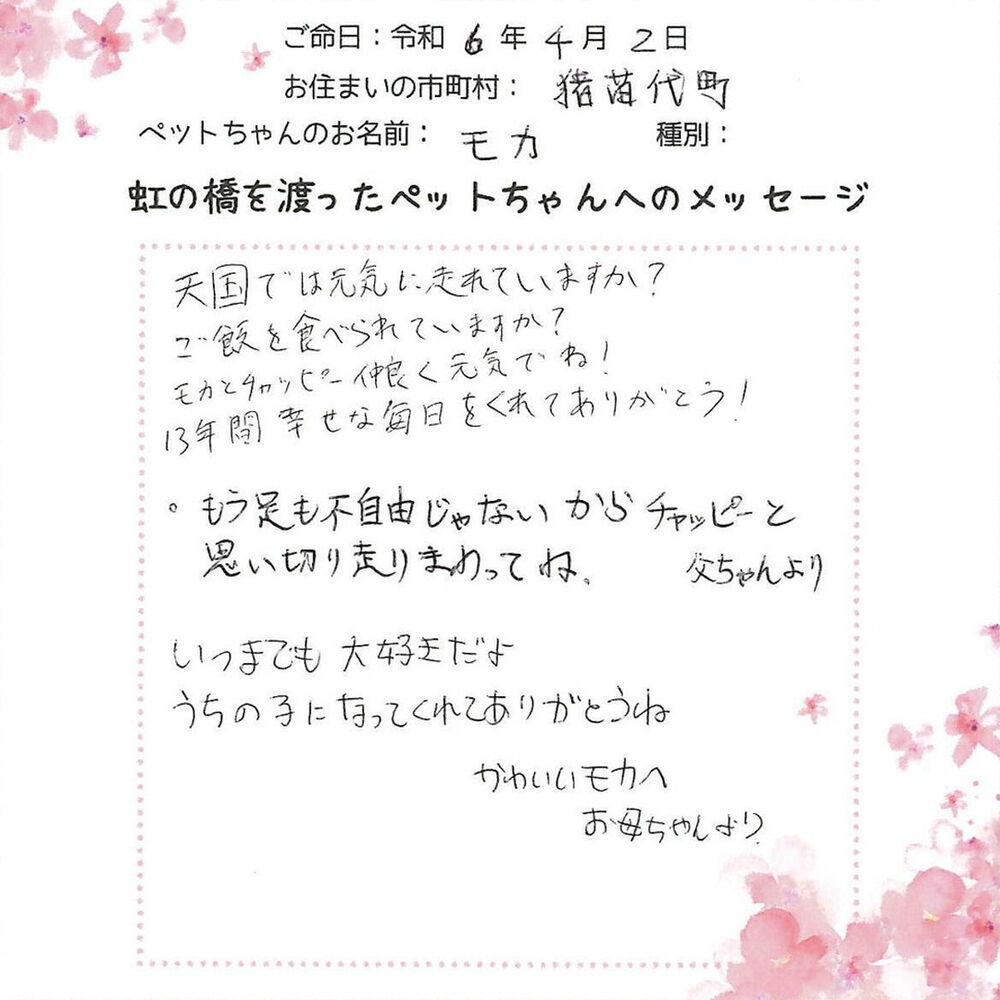 ご命日：令和 6 年 4 月 2 日
お住まいの市町村： 猪苗代町
ペットちゃんのお名前： モカ 種別：
虹の橋を渡ったペットちゃんへのメッセージ
天国では元気に走れていますか？
ご飯を食べられていますか？
モカとチャッピー仲良く元気でね！
13年間 幸せな毎日をくれてありがとう！
。もう足も不自由じゃないからチャッピーと
思い切り走りまわってね、 父ちゃんより
いつまでも 大好きだよ
うちの子になってくれてありがとうね
かわいいモカへ
お母ちゃんより